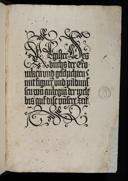 Register Des
buchs der Cro
niken vnd geschichten
mit figuren vnd pildnus
sen von anbeginn der welt
bis auf dise vnsere Zeit